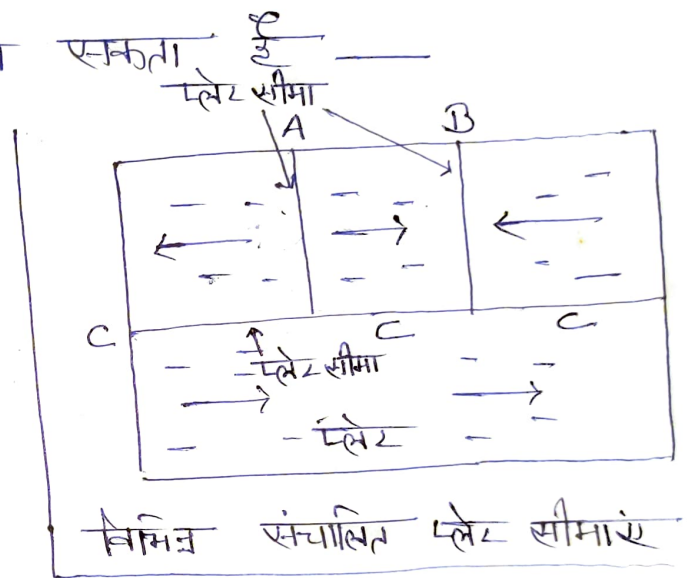 सकता है
प्लेट सीमा
A B
C C C
प्लेट सीमा
प्लेट
विभिन्न संचालित प्लेट सीमाएं